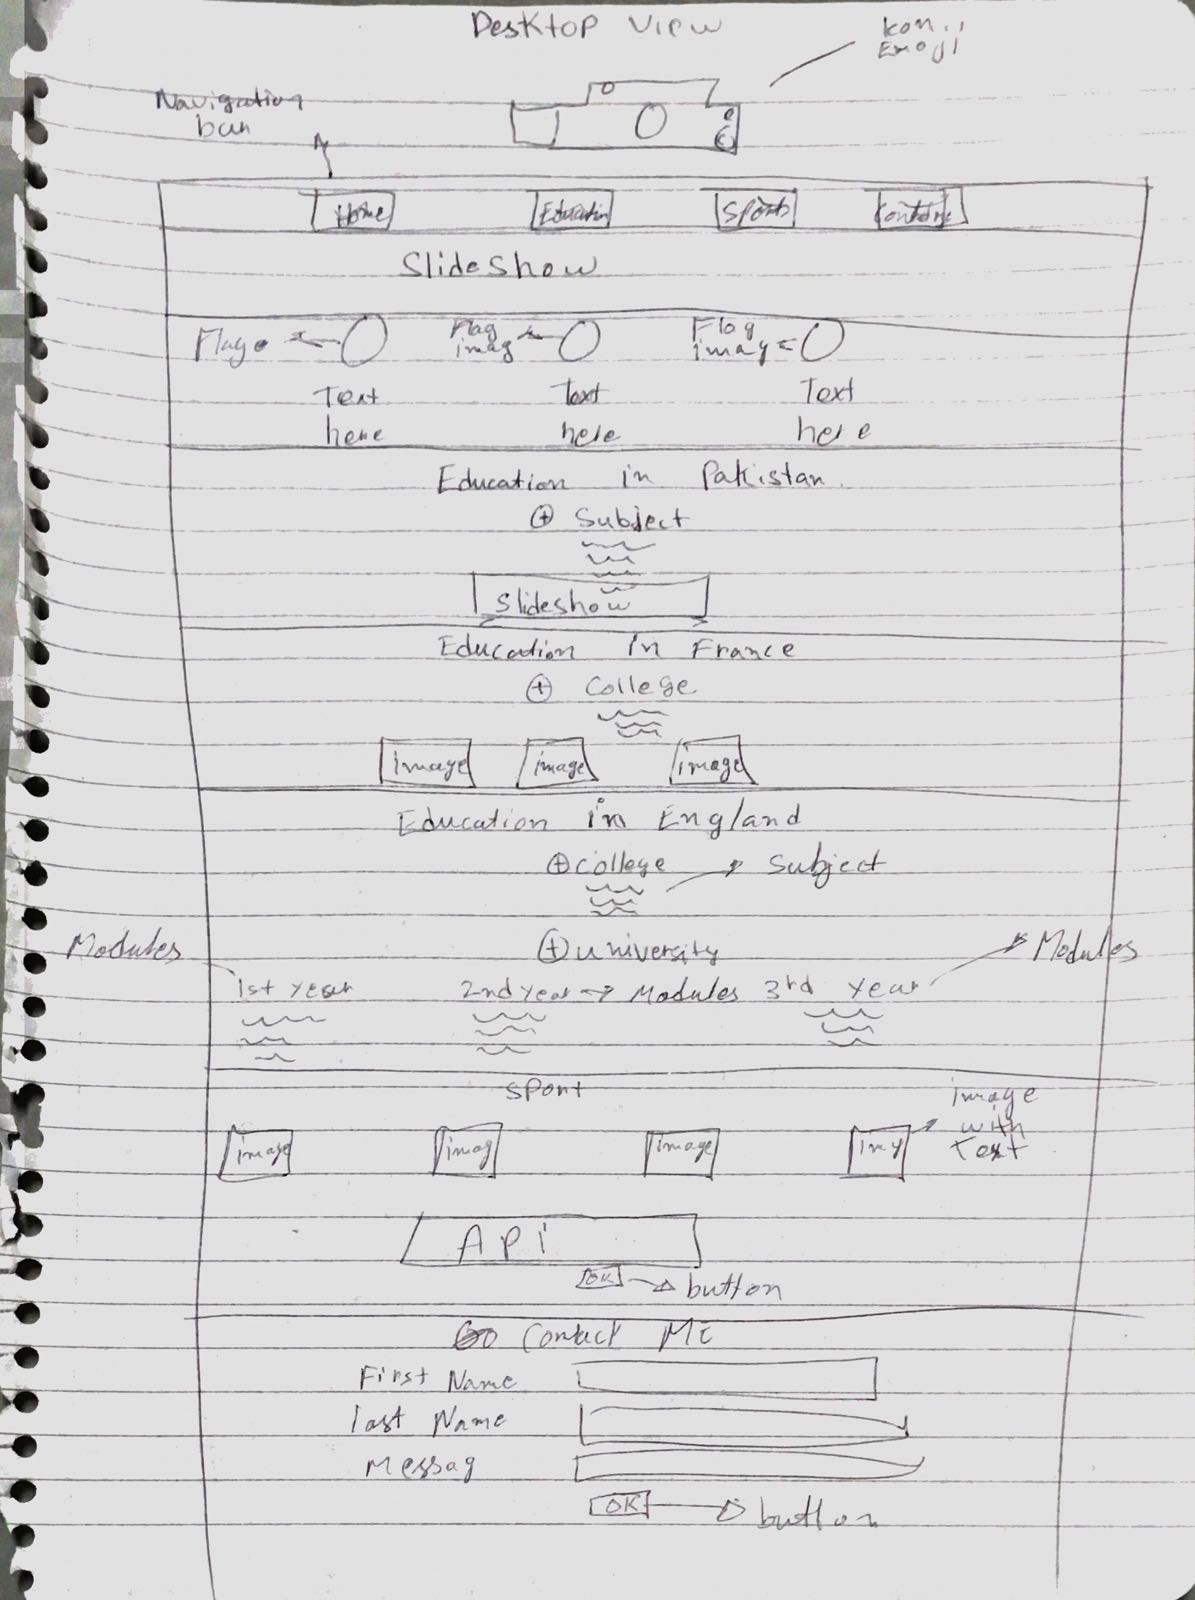 Desktop View
Emoji
Navigation
Home Education Sports
Slideshow
Flag Flag Flag
imag imag
Text Text Text
here here here
Education in Pakistan
+ Subject
Slideshow
Education in France
+ College
image image image
Education in England
+ college → Subject
+ university
Modules Modules
1st year 2nd year → Modules 3rd year
Sport
image
with
Text
image imag image img
API
OK → button
Contact ME
First Name
last Name
Messag
OK → button